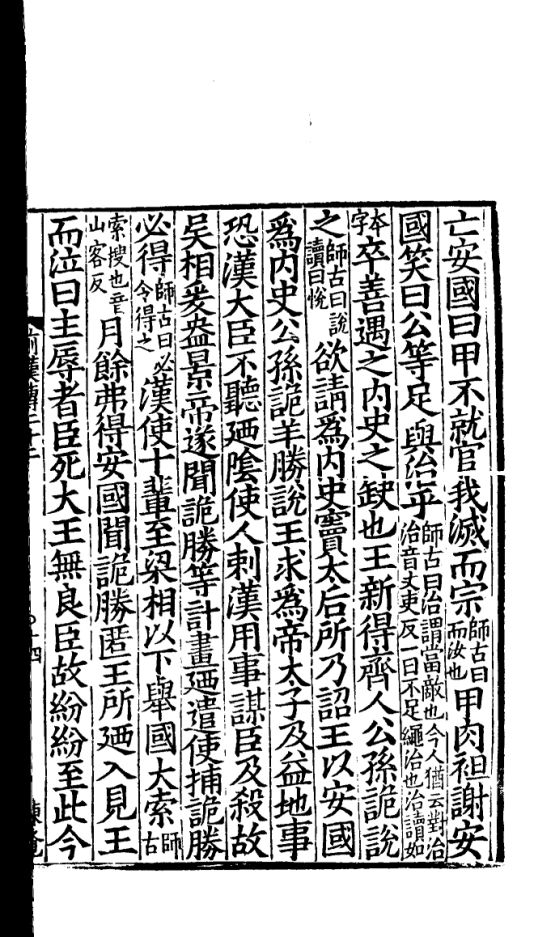 亡安國曰甲不就官我滅而宗師古曰而汝也甲肉袒謝安
國笑曰公等足與治乎師古曰治謂當敵也今人猶云對治治音丈吏反一曰不足繩治也治讀如
本字卒善遇之内史之缺也王新得齊人公孫詭說
之師古曰說讀曰悅欲請爲内史竇太后所乃詔王以安國
爲内史公孫詭羊勝說王求爲帝太子及益地事
恐漢大臣不聽廼隂使人刺漢用事謀臣及殺故
吳相爰盎景帝遂聞詭勝等計畫廼遣使捕詭勝
必得師古曰必令得之漢使十輩至梁相以下舉國大索師古
索搜也音山客反月餘弗得安國聞詭勝匿王所廼入見王
而泣曰主辱者臣死大王無良臣故紛紛至此今
前漢傳二十二